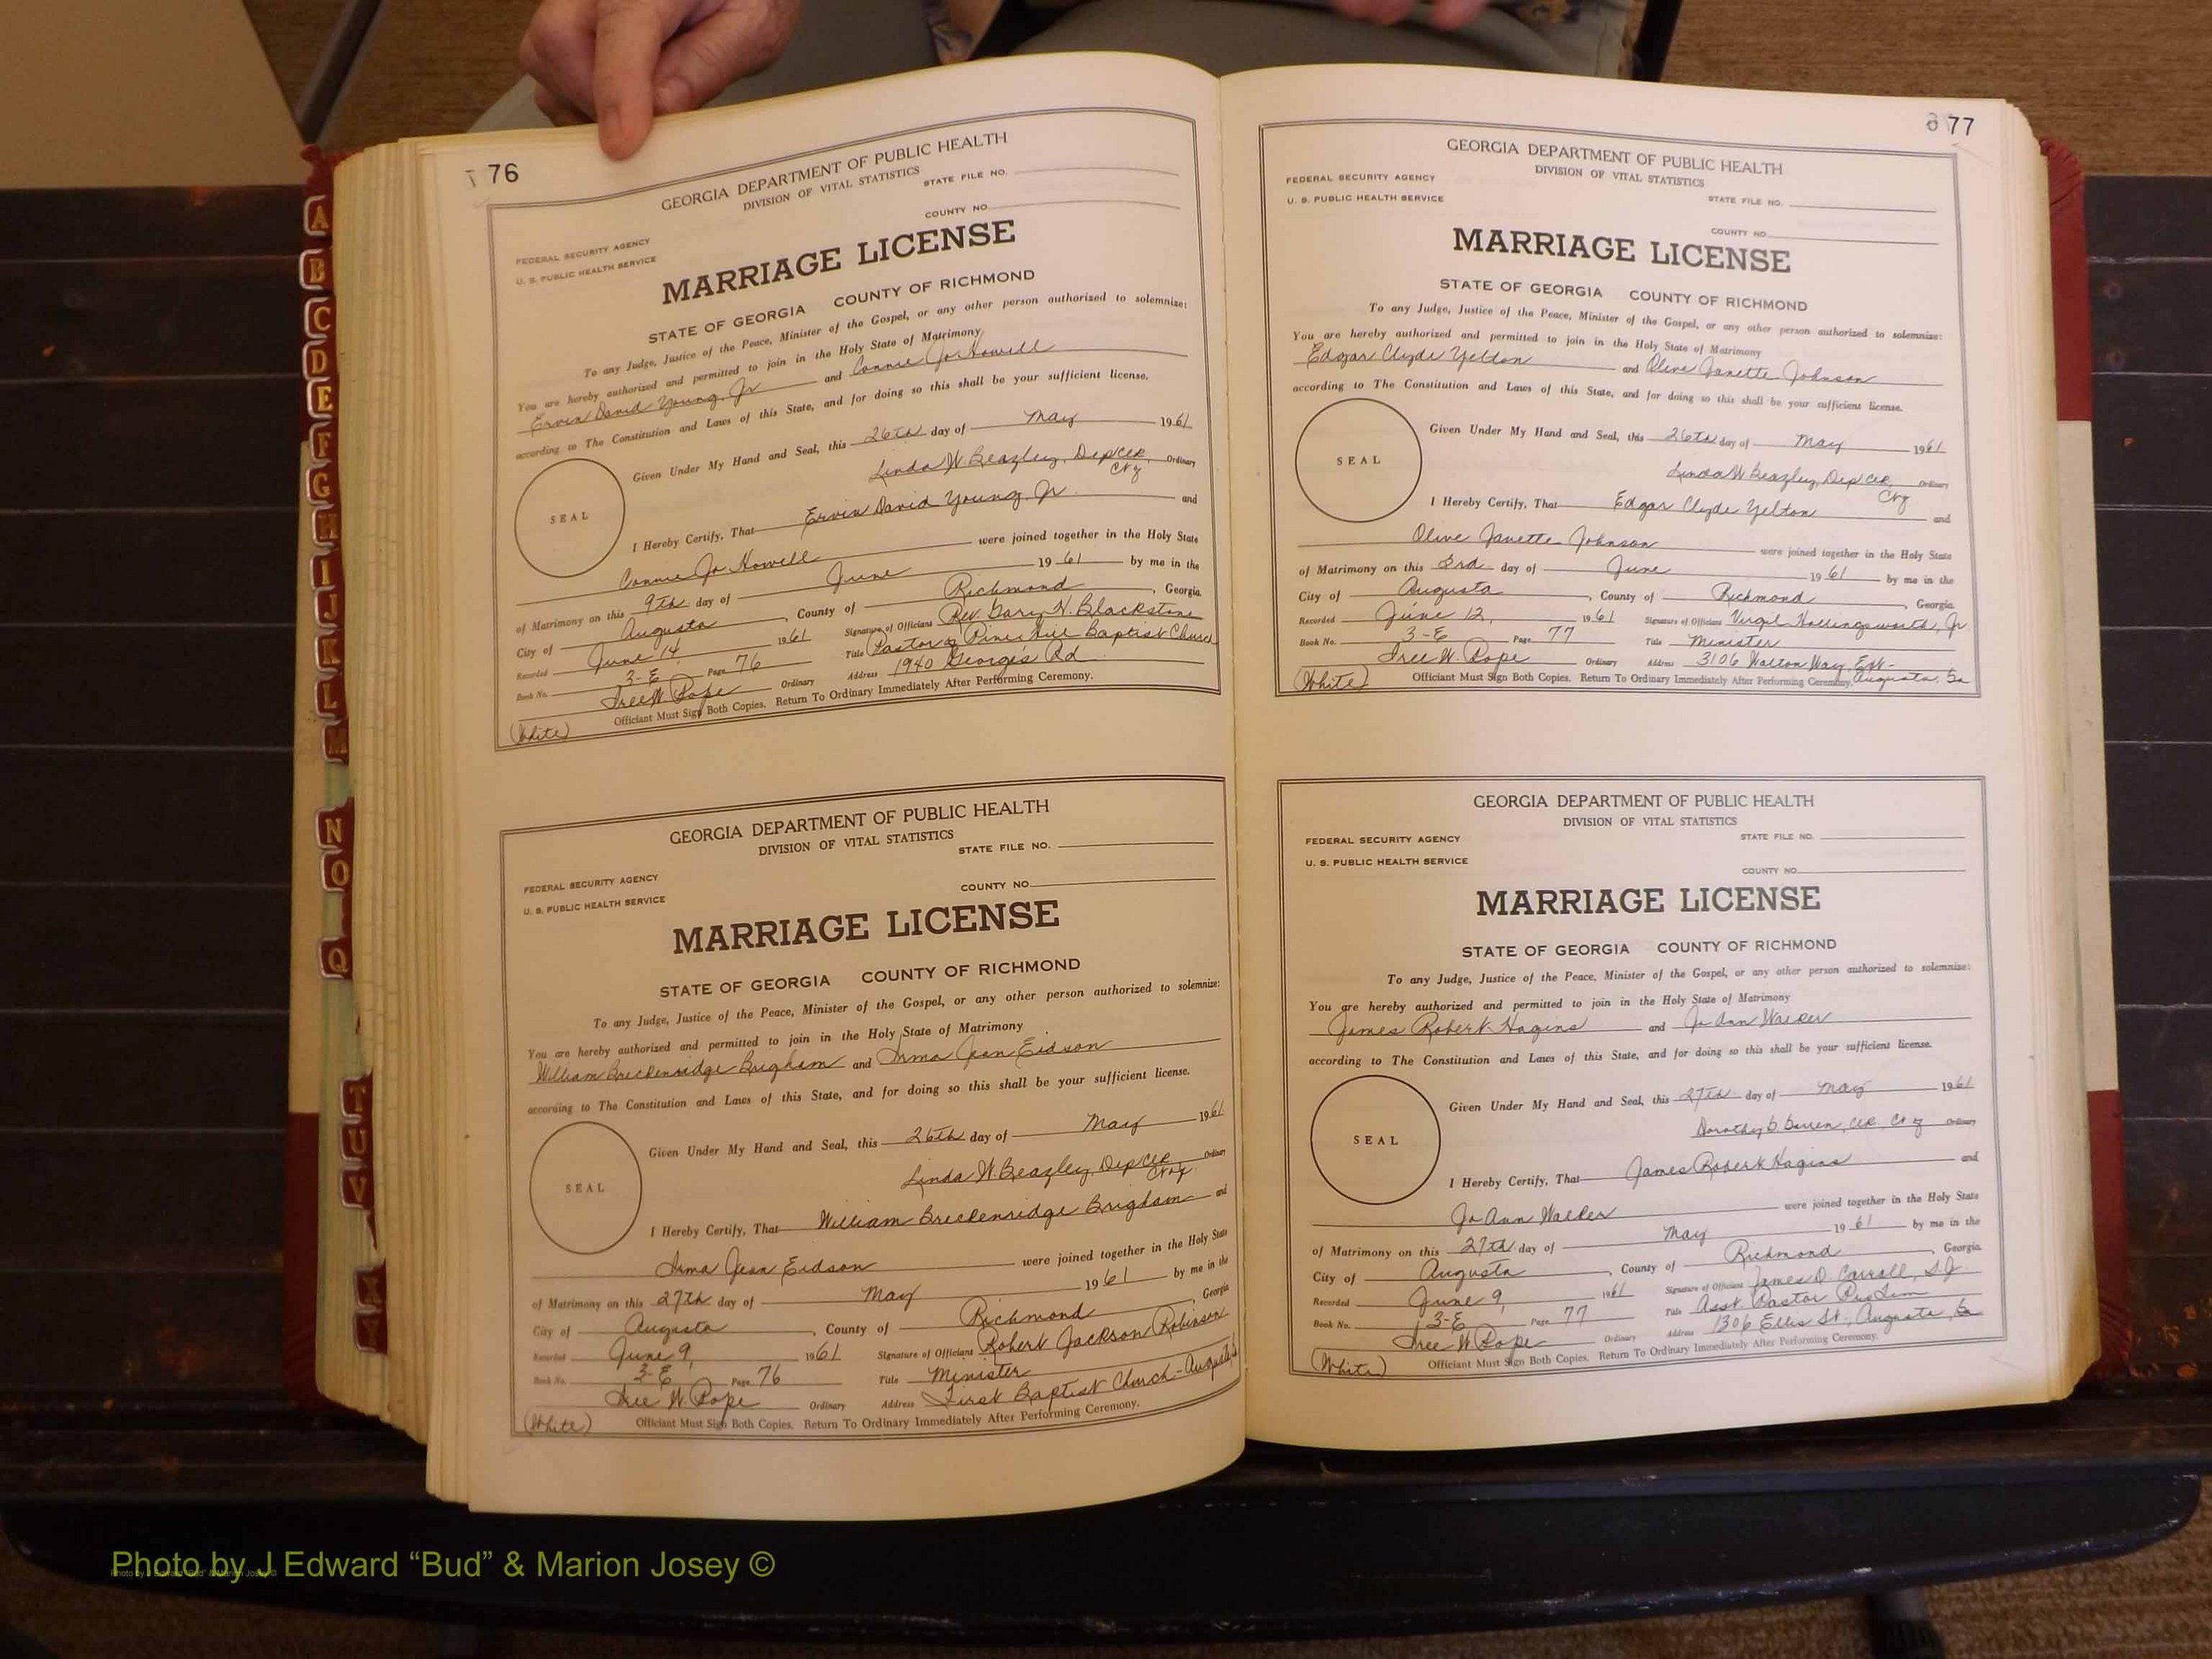 A
B
C
D
E
F
G
H
I
J
K
L
M
N
O
Q
T
U
V
X
Y
76
GEORGIA DEPARTMENT OF PUBLIC HEALTH
DIVISION OF VITAL STATISTICS
STATE FILE NO.
COUNTY NO.
FEDERAL SECURITY AGENCY
U. S. PUBLIC HEALTH SERVICE
MARRIAGE LICENSE
STATE OF GEORGIA COUNTY OF RICHMOND
To any Judge, Justice of the Peace, Minister of the Gospel, or any other person authorized to solemnize:
You are hereby authorized and permitted to join in the Holy State of Matrimony
Ervin David Young, Jr and Connie Jo Howell
according to The Constitution and Laws of this State, and for doing so this shall be your sufficient license.
Given Under My Hand and Seal, this 26th day of May 1961
Linda W. Beazley, Dep Clk, Ordinary
SEAL
I Hereby Certify, That Ervin David Young, Jr. and
Connie Jo Howell were joined together in the Holy State
of Matrimony on this 9th day of June 1961 by me in the
City of Augusta, County of Richmond, Georgia.
Recorded June 14, 1961 Signature of Officiant Rev. Gary N. Blackstone
Book No. 3-E Page 76 Title Pastor of Pines Hill Baptist Church
Tree W. Pope Ordinary Address 1940 Georgia Rd
(White) Officiant Must Sign Both Copies. Return To Ordinary Immediately After Performing Ceremony.
GEORGIA DEPARTMENT OF PUBLIC HEALTH
DIVISION OF VITAL STATISTICS
STATE FILE NO.
FEDERAL SECURITY AGENCY
COUNTY NO.
U. S. PUBLIC HEALTH SERVICE
MARRIAGE LICENSE
STATE OF GEORGIA COUNTY OF RICHMOND
To any Judge, Justice of the Peace, Minister of the Gospel, or any other person authorized to solemnize:
You are hereby authorized and permitted to join in the Holy State of Matrimony
William Breckenridge Brigham and Irma Jean Eidson
according to The Constitution and Laws of this State, and for doing so this shall be your sufficient license.
Given Under My Hand and Seal, this 26th day of May 1961
Linda W. Beazley, Dep Clk Ordinary
SEAL
I Hereby Certify, That William Breckenridge Brigham and
Irma Jean Eidson were joined together in the Holy State
of Matrimony on this 27th day of May 1961 by me in the
City of Augusta, County of Richmond Georgia
Recorded June 9, 1961 Signature of Officiant Robert Jackson Robinson
Book No. 3-E Page 76 Title Minister
Tree W. Pope Ordinary Address First Baptist Church - Augusta
(White) Officiant Must Sign Both Copies. Return To Ordinary Immediately After Performing Ceremony.
77
GEORGIA DEPARTMENT OF PUBLIC HEALTH
DIVISION OF VITAL STATISTICS
FEDERAL SECURITY AGENCY
U. S. PUBLIC HEALTH SERVICE STATE FILE NO.
COUNTY NO.
MARRIAGE LICENSE
STATE OF GEORGIA COUNTY OF RICHMOND
To any Judge, Justice of the Peace, Minister of the Gospel, or any other person authorized to solemnize:
You are hereby authorized and permitted to join in the Holy State of Matrimony
Edgar Clyde Yelton and Olive Janette Johnson
according to The Constitution and Laws of this State, and for doing so this shall be your sufficient license.
Given Under My Hand and Seal, this 26th day of May 1961
Linda W Beazley, Dep Clk, Ordinary
SEAL
I Hereby Certify, That Edgar Clyde Yelton and
Olive Janette Johnson were joined together in the Holy State
of Matrimony on this 3rd day of June 1961 by me in the
City of Augusta, County of Richmond, Georgia
Recorded June 12, 1961 Signature of Officiant Virgil Hollingsworth, Jr
Book No. 3-E Page 77 Title Minister
Tree W. Pope Ordinary Address 3106 Walton Way, Ext-
(White) Officiant Must Sign Both Copies. Return To Ordinary Immediately After Performing Ceremony. Augusta, Ga
GEORGIA DEPARTMENT OF PUBLIC HEALTH
DIVISION OF VITAL STATISTICS
FEDERAL SECURITY AGENCY STATE FILE NO.
U. S. PUBLIC HEALTH SERVICE
COUNTY NO.
MARRIAGE LICENSE
STATE OF GEORGIA COUNTY OF RICHMOND
To any Judge, Justice of the Peace, Minister of the Gospel, or any other person authorized to solemnize:
You are hereby authorized and permitted to join in the Holy State of Matrimony
James Robert Hagins and Jo Ann Walker
according to The Constitution and Laws of this State, and for doing so this shall be your sufficient license.
Given Under My Hand and Seal, this 27th day of May 1961
Dorothy Clk. Ordinary
SEAL
I Hereby Certify, That James Robert Hagins and
Jo Ann Walker were joined together in the Holy State
of Matrimony on this 27th day of May 1961 by me in the
City of Augusta, County of Richmond, Georgia
Recorded June 9, 1961 Signature of Officiant James D. Carroll, S.J.
Book No. 3-E Page 77 Title Asst. Pastor
Tree W. Pope Ordinary Address 1306 Ellis St., Augusta, Ga
(White) Officiant Must Sign Both Copies. Return To Ordinary Immediately After Performing Ceremony.
Photo by J Edward “Bud” & Marion Josey ©
Photo by J Edward “Bud” & Marion Josey ©